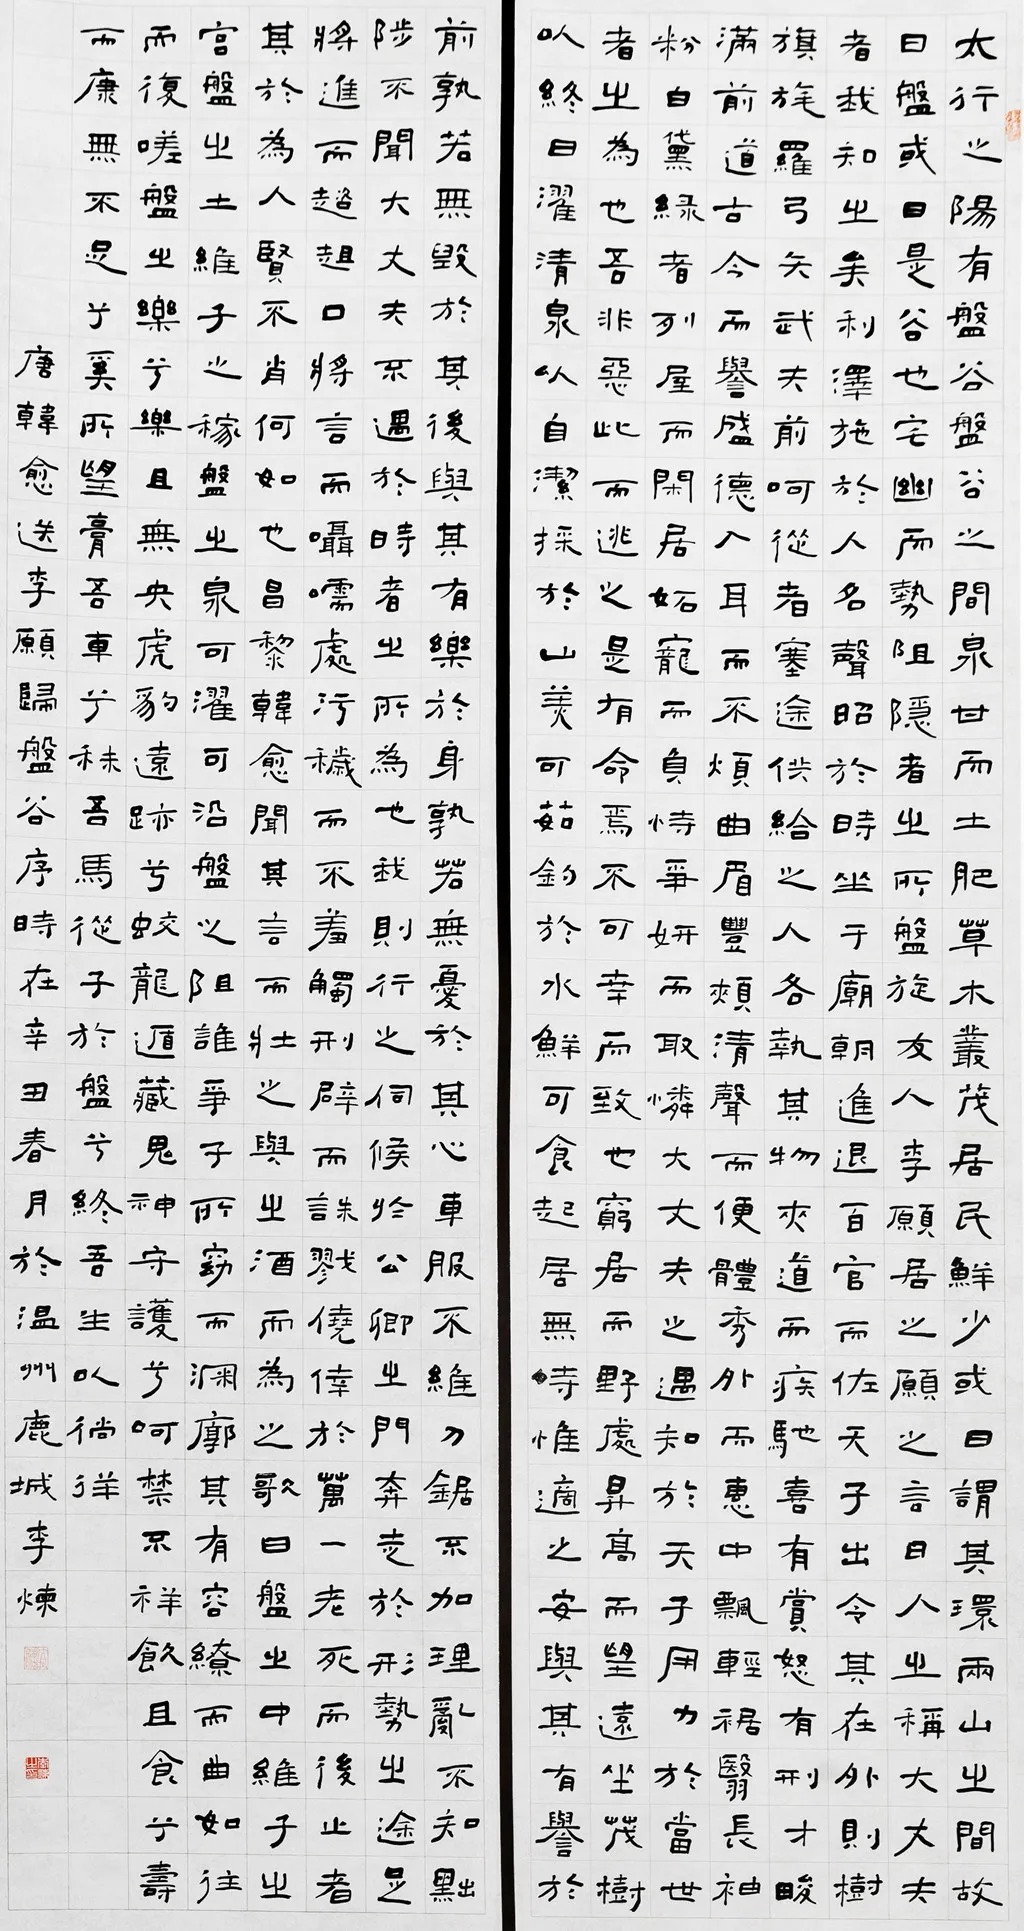 太行之陽有盤谷盤谷之間泉甘而土肥草木叢茂居民鮮少或曰謂其環兩山之間故
曰盤或曰是谷也宅幽而勢阻隱者之所盤旋友人李願居之願之言曰人之稱大丈夫
者我知之矣利澤施於人名聲昭於時坐于廟朝進退百官而佐天子出令其在外則樹
旗旄羅弓矢武夫前呵從者塞途供給之人各執其物夾道而疾馳喜有賞怒有刑才畯
滿前道古今而譽盛德入耳而不煩曲眉豐頰清聲而便體秀外而惠中飄輕裾翳長袖
粉白黛緑者列屋而閑居妬寵而負恃爭妍而取憐大丈夫之遇知於天子用力於當世
者之為也吾非惡此而逃之是有命焉不可幸而致也窮居而野處昇高而望遠坐茂樹
以終日濯清泉以自潔採於山美可茹釣於水鮮可食起居無時惟適之安與其有譽於
前孰若無毀於其後與其有樂於身孰若無憂於其心車服不維刀鋸不加理亂不知黜
陟不聞大丈夫不遇於時者之所為也我則行之伺候於公卿之門奔走於形勢之途足
將進而趑趄口將言而囁嚅處污穢而不羞觸刑辟而誅戮僥倖於萬一老死而後止者
其於為人賢不肖何如也昌黎韓愈聞其言而壯之與之酒而為之歌曰盤之中維子之
宮盤之土維子之稼盤之泉可濯可沿盤之阻誰爭子所窈而深廓其有容繚而曲如往
而復嗟盤之樂兮樂且無央虎豹遠跡兮蛟龍遁藏鬼神守護兮呵禁不祥飲且食兮壽
而康無不足兮奚所望膏吾車兮秣吾馬從子於盤兮終吾生以徜徉
唐韓愈送李願歸盤谷序時在辛丑春月於温州鹿城李煉